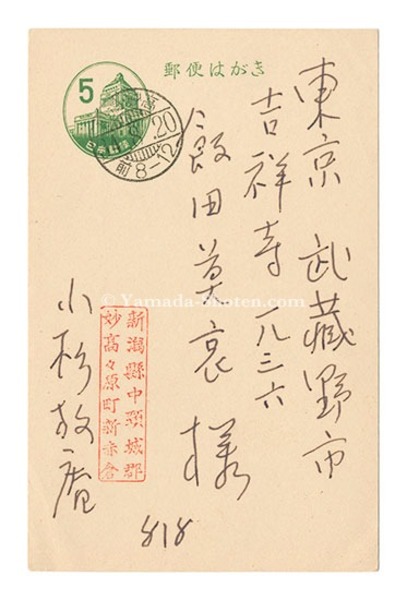 郵便はがき
5
日本郵便
20
前8-12
東京 武蔵野市
吉祥寺一九三六
飯田莫哀様
新潟縣中頸城郡
妙高々原町新赤倉
小杉放庵
818
© Yamada-Shoten.com